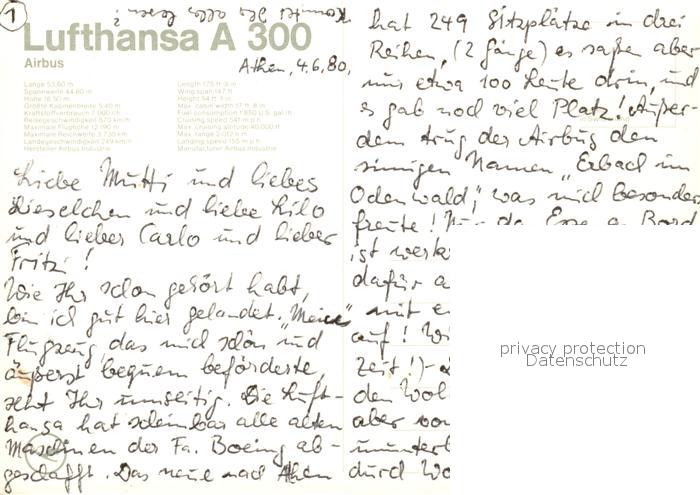 1
Könntet Ihr alles lesen?
Lufthansa A 300
Airbus
Athen, 4.6.80,
Länge 53,60 m
Spannweite 44,80 m
Höhe 16,50 m
Größte Kabinenbreite 5,40 m
Reisegeschwindigkeit 870 km/h
Maximale Flughöhe 12 190 m
Maximale Reichweite 3 730 km
Landegeschwindigkeit 249 km/h
Hersteller Airbus Industrie
Length 175 ft 9 in
Wing span 147 ft
Height 54 ft 1 in
Max. cabin width 17 ft 8 in
Cruising speed 541 m.p.h.
Max. cruising altitude 40.000 ft
Landing speed 155 m.p.h.
Manufacturer Airbus Industrie
Liebe Mutti und liebes
Lieselchen und liebe Lilo
und lieber Carlo und lieber
Fritzi!
Wie Ihr schon gehört habt,
bin ich gut hier gelandet. "Meine"
Flugzeug, das mich schön und
äußerst bequem beförderte,
seht Ihr umseitig. Die Luft-
hansa hat scheinbar alle alten
Maschinen der Fa. Boeing ab-
geschafft. Das neue nach Athen
hat 249 Sitzplätze in drei
Reihen, (2 Gänge) es saßen aber
nur etwa 100 Leute drin, und
es gab noch viel Platz! Außer-
dem trug der Airbus den
sinnigen Namen "Erbach im
Odenwald", was mich besonders
freute! Nur da Esse a. Bord
ist
dafür
mit
auf!
Zeit!)
den Wol
aber
ununterb
durch Wo
privacy protection
Datenschutz